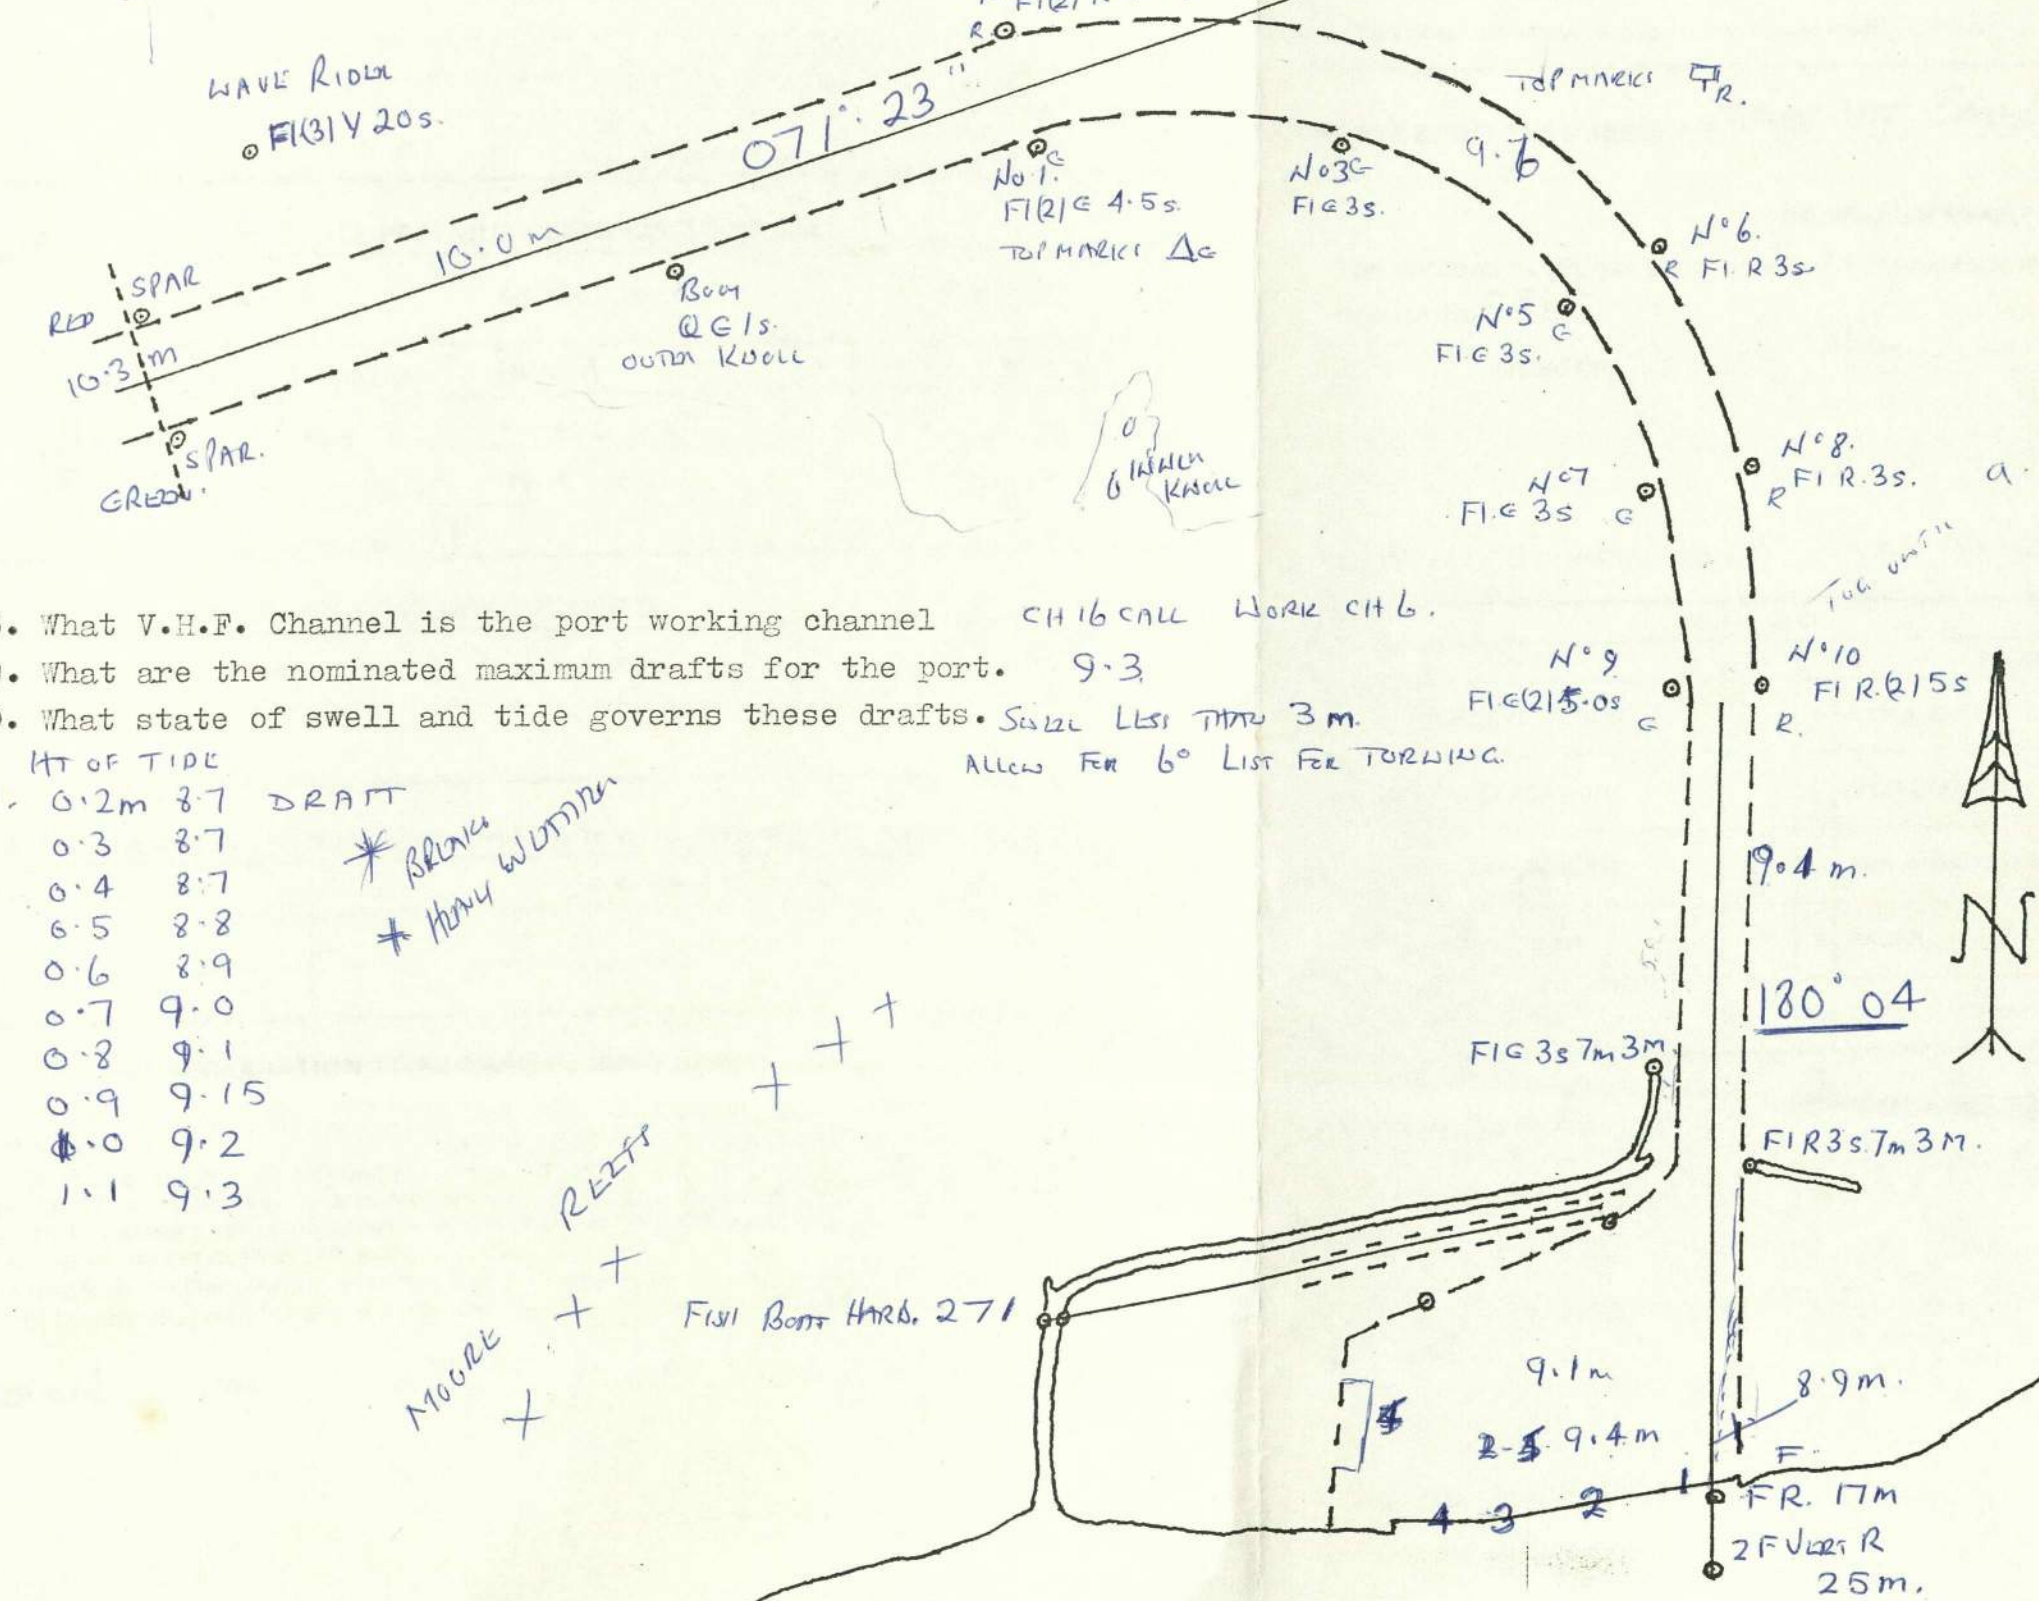 R.
WAVE RIDER
Fl(3)Y 20s.
071°. 23"
TOP MARKS R.
9.6
No.1. G
Fl(2)G 4.5s.
TOP MARKS △G
No3G
FlG3s.
10.0m
SPAR
RED
10.3m
SPAR.
GREEN.
BUOY
QG1s.
OUTER KNOLL
INNER
KNOLL
No6.
R Fl.R3s.
No5 G
Fl.G 3s.
No8.
R Fl R.3s.
No7
Fl.G 3s G
a.
TUG UNTIL
. What V.H.F. Channel is the port working channel CH 16 CALL WORK CH 6.
. What are the nominated maximum drafts for the port. 9.3
. What state of swell and tide governs these drafts. SWELL LESS THAN 3m.
ALLOW FOR 6° LIST FOR TURNING.
No9
Fl.G(2)5.0s
G
No10
Fl R.(2)5s
R.
HT OF TIDE
0.2m 8.7 DRAFT
0.3 8.7
0.4 8.7
0.5 8.8
0.6 8.9
0.7 9.0
0.8 9.1
0.9 9.15
1.0 9.2
1.1 9.3
* BREAKS
* HEAVY WEATHER
9.4m.
N
180° 04
FlG 3s 7m 3M
FlR3s.7m 3M.
MOORE REEFS
FISH BOAT HARB. 271
9.1m
8.9m.
9.4m
F
4 3 2 1
FR. 17m
2 F VERT R
25m.